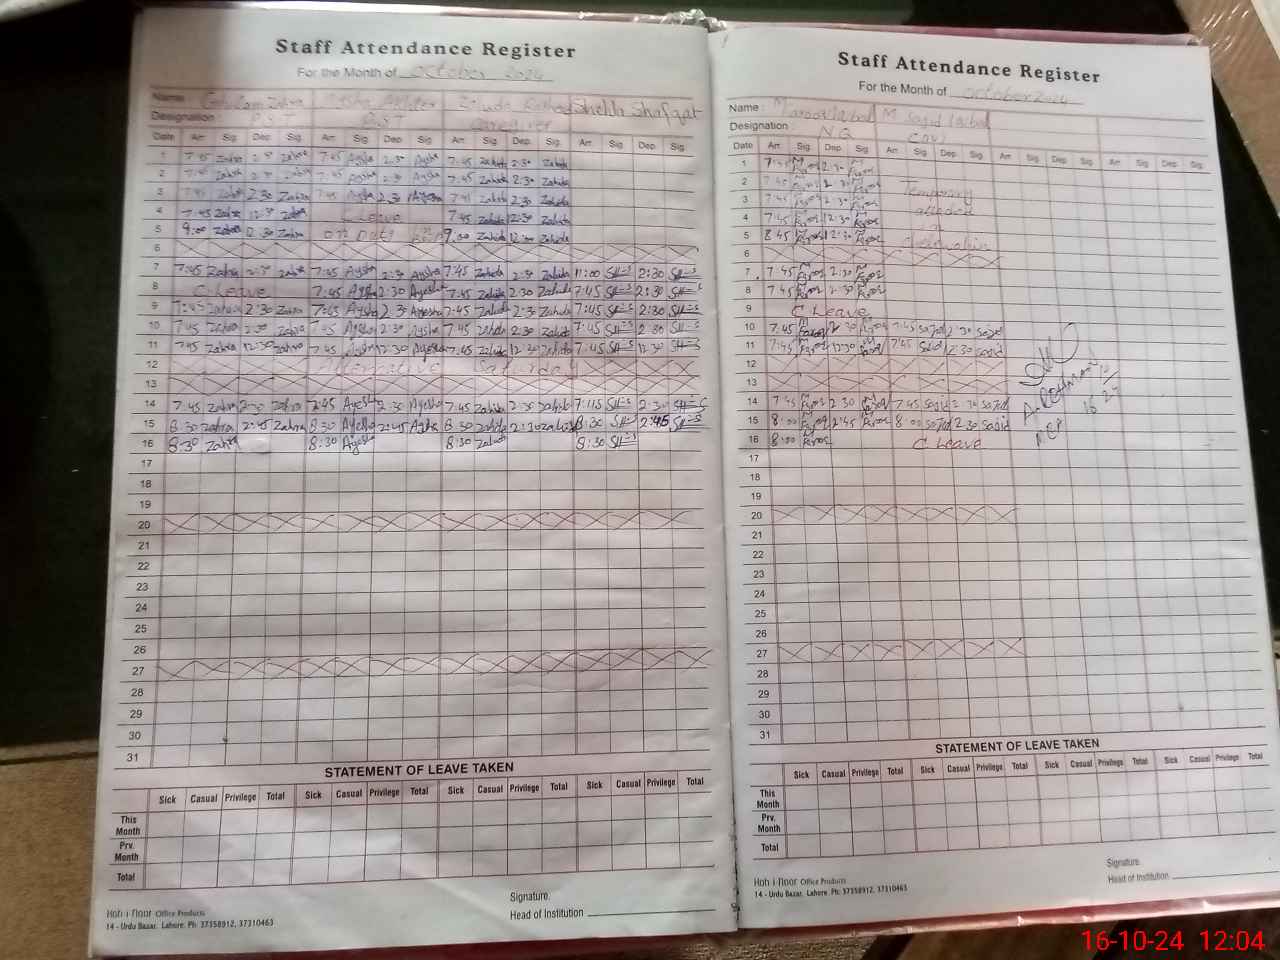 Staff Attendance Register
For the Month of October 2024
Name : Ghulam Zahra Aysha Akhter Zahida Shehla Shafqat
Designation : PST PST Caregiver
Date Arr. Sig. Dep. Sig. Arr. Sig. Dep. Sig. Arr. Sig. Dep. Sig. Arr. Sig. Dep. Sig.
1 7:45 Zahra 2:30 Zahra 7:45 Aysha 2:30 Aysha 7:45 Zahida 2:30 Zahida
2 7:45 Zahra 2:30 Zahra 7:45 Aysha 2:30 Aysha 7:45 Zahida 2:30 Zahida
3 7:45 Zahra 2:30 Zahra 7:45 Aysha 2:30 Aysha 7:45 Zahida 2:30 Zahida
4 7:45 Zahra 12:30 Zahra C Leave 7:45 Zahida 12:30 Zahida
5 9:00 Zahra 12:30 Zahra 9:00 Zahida 12:00 Zahida
6
7 7:45 Zahra 2:30 Zahra 7:45 Aysha 2:30 Aysha 7:45 Zahida 2:30 Zahida 11:00 2:30
8 C Leave 7:45 Aysha 2:30 Ayesha 7:45 Zahida 2:30 Zahida 7:45 2:30
9 7:45 Zahra 2:30 Zahra 7:45 Aysha 2:30 Ayesha 7:45 Zahida 2:30 Zahida 7:45 2:30
10 7:45 Zahra 2:30 Zahra 7:45 Aysha 2:30 Aysha 7:45 Zahida 2:30 Zahida 7:45 2:30
11 7:45 Zahra 12:30 Zahra 7:45 Aysha 12:30 Aysha 7:45 Zahida 12:30 Zahida 7:45 12:30
12 Alternative Saturday
13
14 7:45 Zahra 2:30 Zahra 7:45 Ayesha 2:30 Aysha 7:45 Zahida 2:30 Zahida 2:30
15 8:30 Zahra 2:45 Zahra 8:30 Ayesha 2:45 Aysha 8:30 Zahida 2:30 Zahida 8:30 2:45
16 8:30 Zahra 8:30 Aysha 8:30 Zahida 8:30
17
18
19
20
21
22
23
24
25
26
27
28
29
30
31
STATEMENT OF LEAVE TAKEN
Sick Casual Privilege Total Sick Casual Privilege Total Sick Casual Privilege Total Sick Casual Privilege Total
This Month
Prv. Month
Total
Signature.
Head of Institution
Hoh i Noor Office Products
14 - Urdu Bazar, Lahore. Ph: 37358912, 37310463
Staff Attendance Register
For the Month of October 2024
Name : Iqbal M Sajid Iqbal
Designation : N.Q
Date Arr. Sig. Dep. Sig. Arr. Sig. Dep. Sig. Arr. Sig. Dep. Sig. Arr. Sig. Dep. Sig.
1 7:45 2:30
2 7:45 2:30 Temporary
3 7:45 2:30
4 7:45 12:30
5 8:45 12:30
6
7 7:45 2:30
8 7:45 2:30
9 C Leave
10 7:45 2:30 7:45 Sajid 2:30 Sajid
11 7:45 12:30 7:45 Sajid 12:30 Sajid
12
13
14 7:45 2:30 7:45 Sajid 2:30 Sajid
15 8:00 2:45 8:00 Sajid 2:30 Sajid
16 8:00 C Leave
17
18
19
20
21
22
23
24
25
26
27
28
29
30
31
STATEMENT OF LEAVE TAKEN
Sick Casual Privilege Total Sick Casual Privilege Total Sick Casual Privilege Total Sick Casual Privilege Total
This Month
Prv. Month
Total
Signature.
Head of Institution
Hoh i Noor Office Products
14 - Urdu Bazar, Lahore. Ph: 37358912, 37310463
16-10-24 12:04